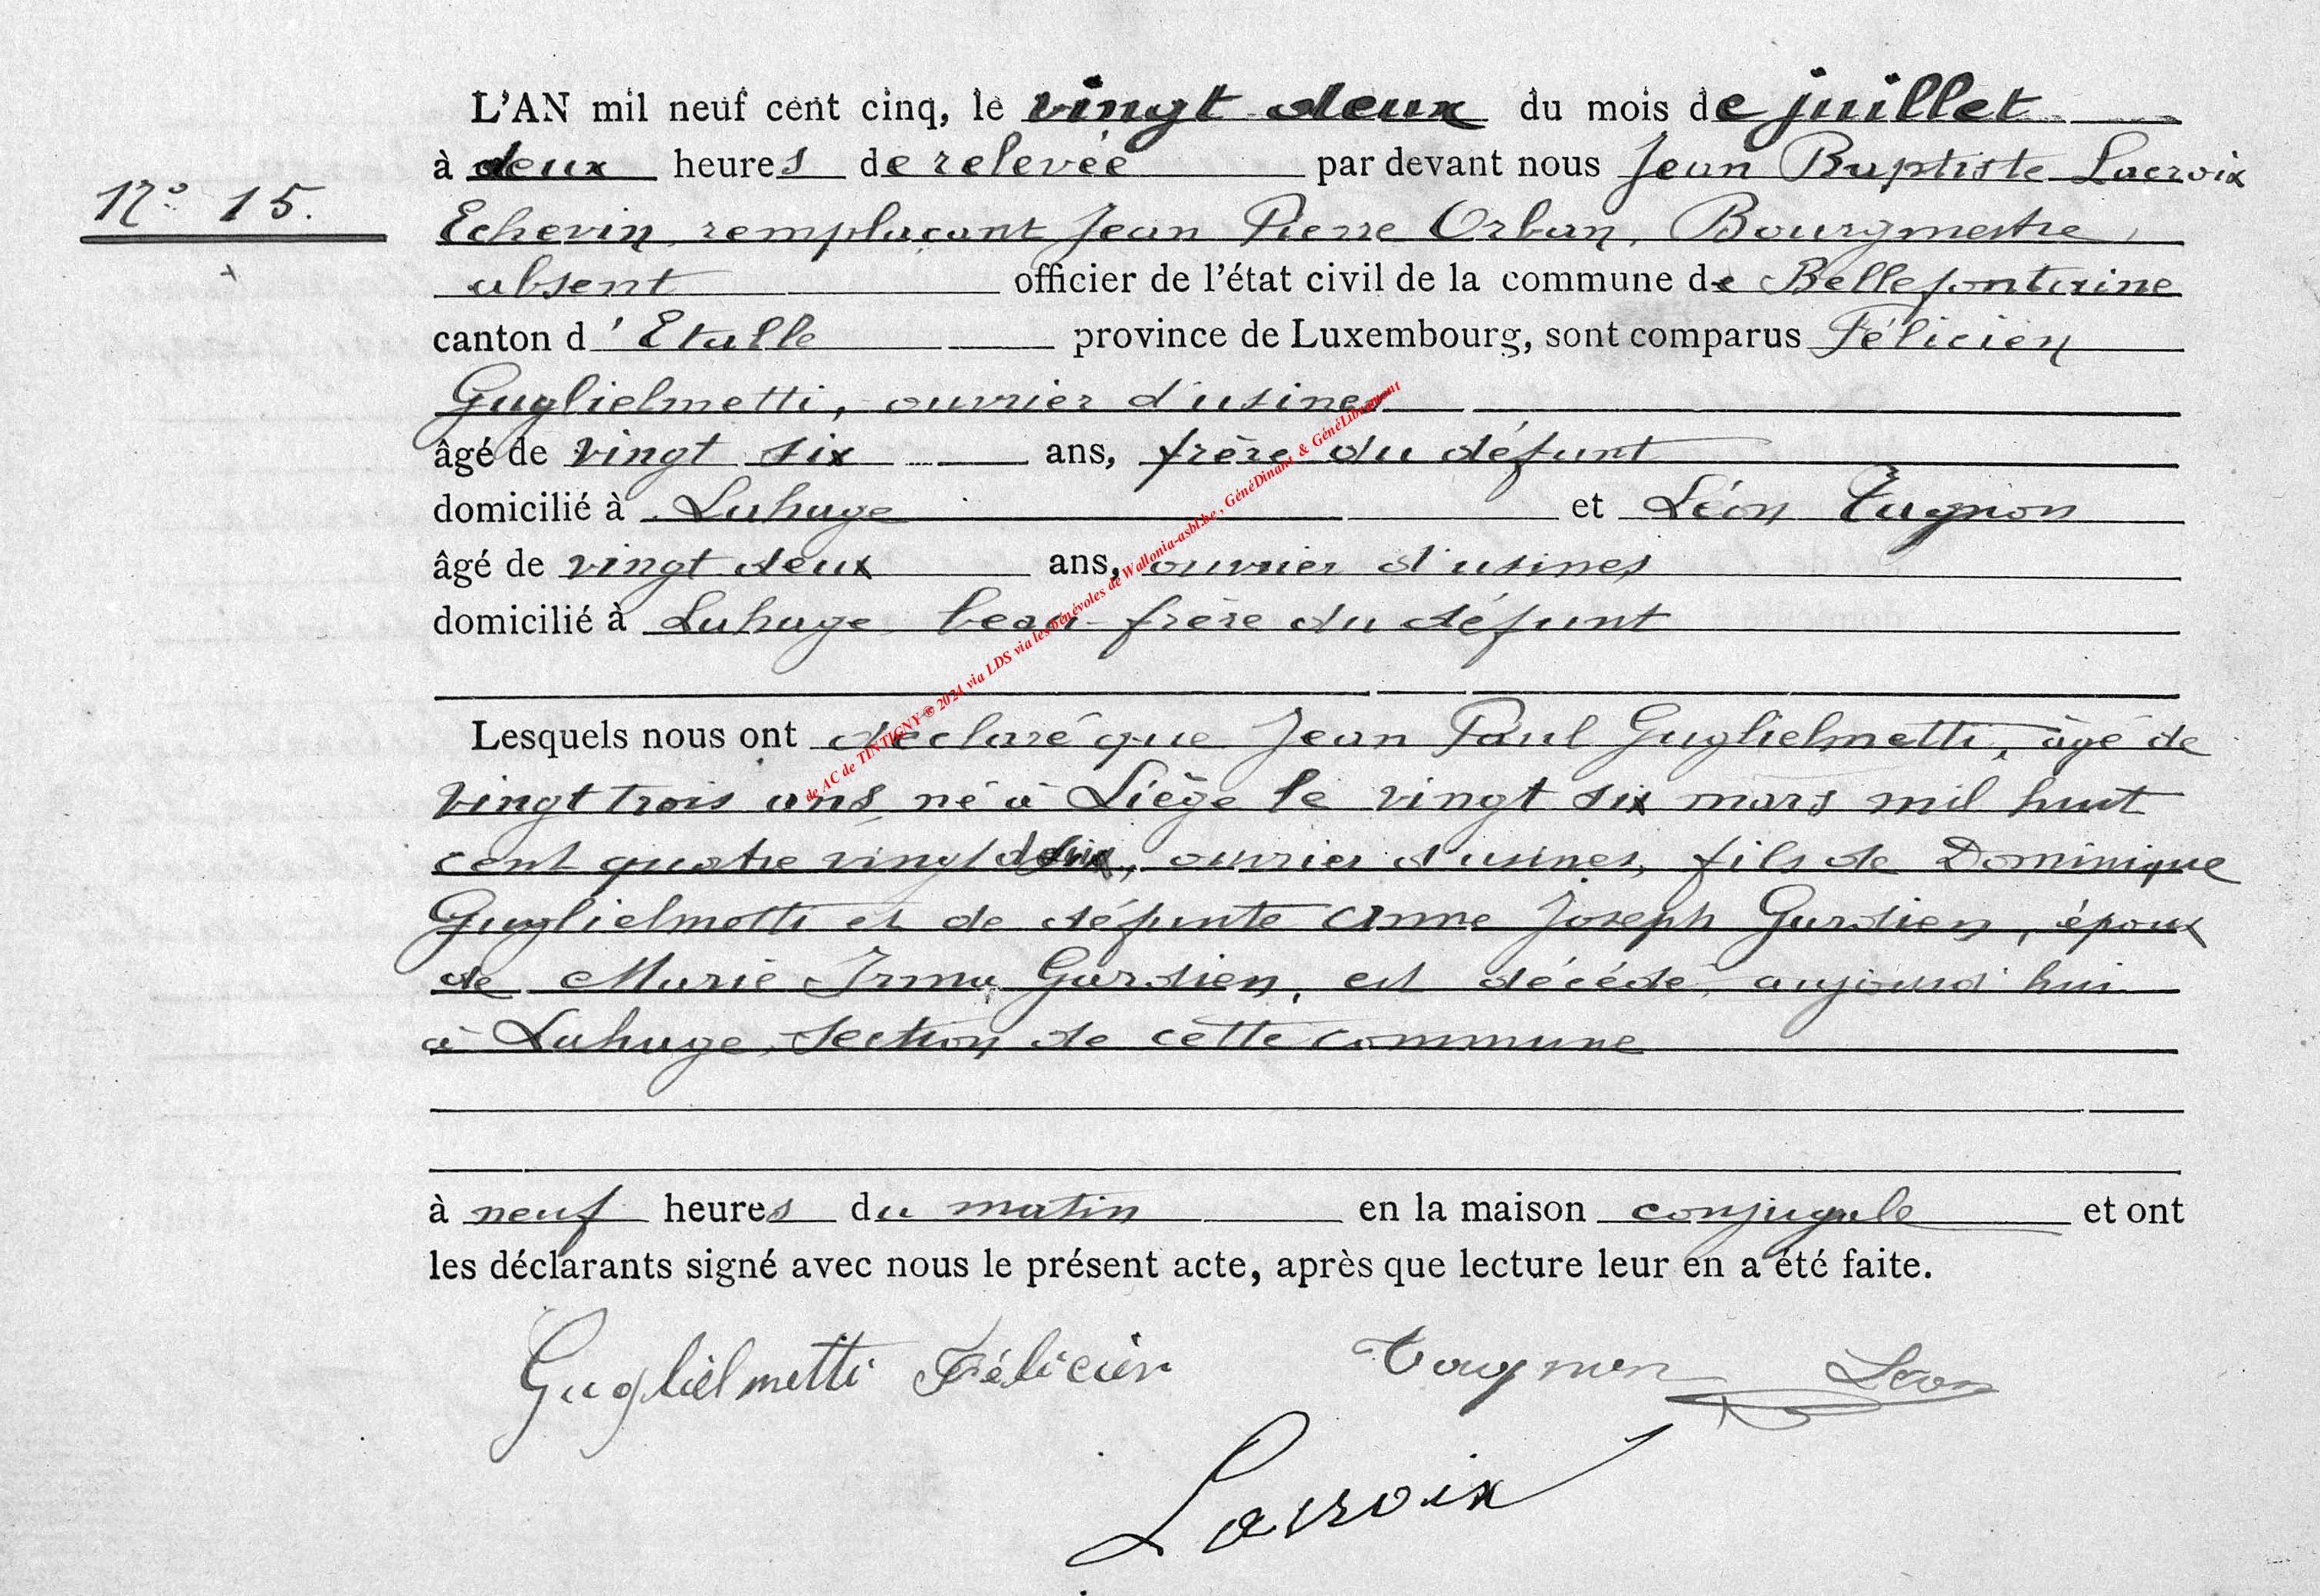 L'AN mil neuf cent cinq, le vingt deux du mois de juillet
à deux heures de relevée par devant nous Jean Baptiste Lacroix
N° 15.
Echevin remplaçant Jean Pierre Orban, Bourgmestre,
absent officier de l'état civil de la commune de Bellefontaine
canton d'Etalle province de Luxembourg, sont comparus Félicien
Guglielmetti, ouvrier d'usines
âgé de vingt six ans, frère du défunt
domicilié à Lahage et Léon Tugnon
âgé de vingt deux ans, ouvrier d'usines
domicilié à Lahage beau-frère du défunt
de AC de TINTIGNY ® 2024 via LDS via les bénévoles de Wallonia-asbl.be, GénéDinant & GénéLibramont
Lesquels nous ont déclaré que Jean Paul Guglielmetti, âgé de
vingt trois ans, né à Liège le vingt six mars mil huit
cent quatre vingt deux, ouvrier d'usines, fils de Dominique
Guglielmetti et de défunte Anne Joseph Gardien, époux
de Marie Irma Gardien, est décédé aujourd'hui
à Lahage, section de cette commune
à neuf heures du matin en la maison conjugale et ont
les déclarants signé avec nous le présent acte, après que lecture leur en a été faite.
Guglielmetti Félicien Tougnon Léon
Lacroix